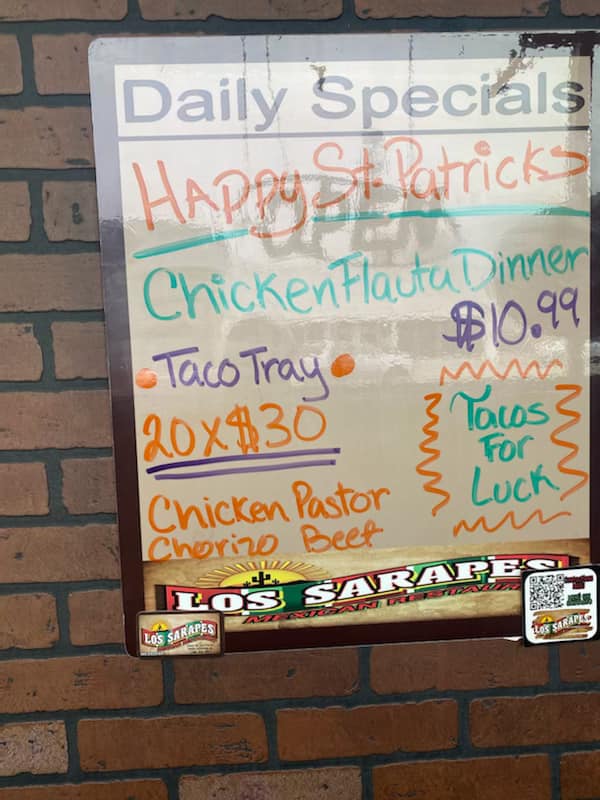 Daily Specials
HAPPY St. Patricks
OPEN
Chicken Flauta Dinner
$10.99
• Taco Tray •
20 x $30
Tacos
For
Luck
Chicken Pastor
Chorizo Beef
LOS SARAPES
MEXICAN RESTAURANT
LOS SARAPES
LOS SARAPES